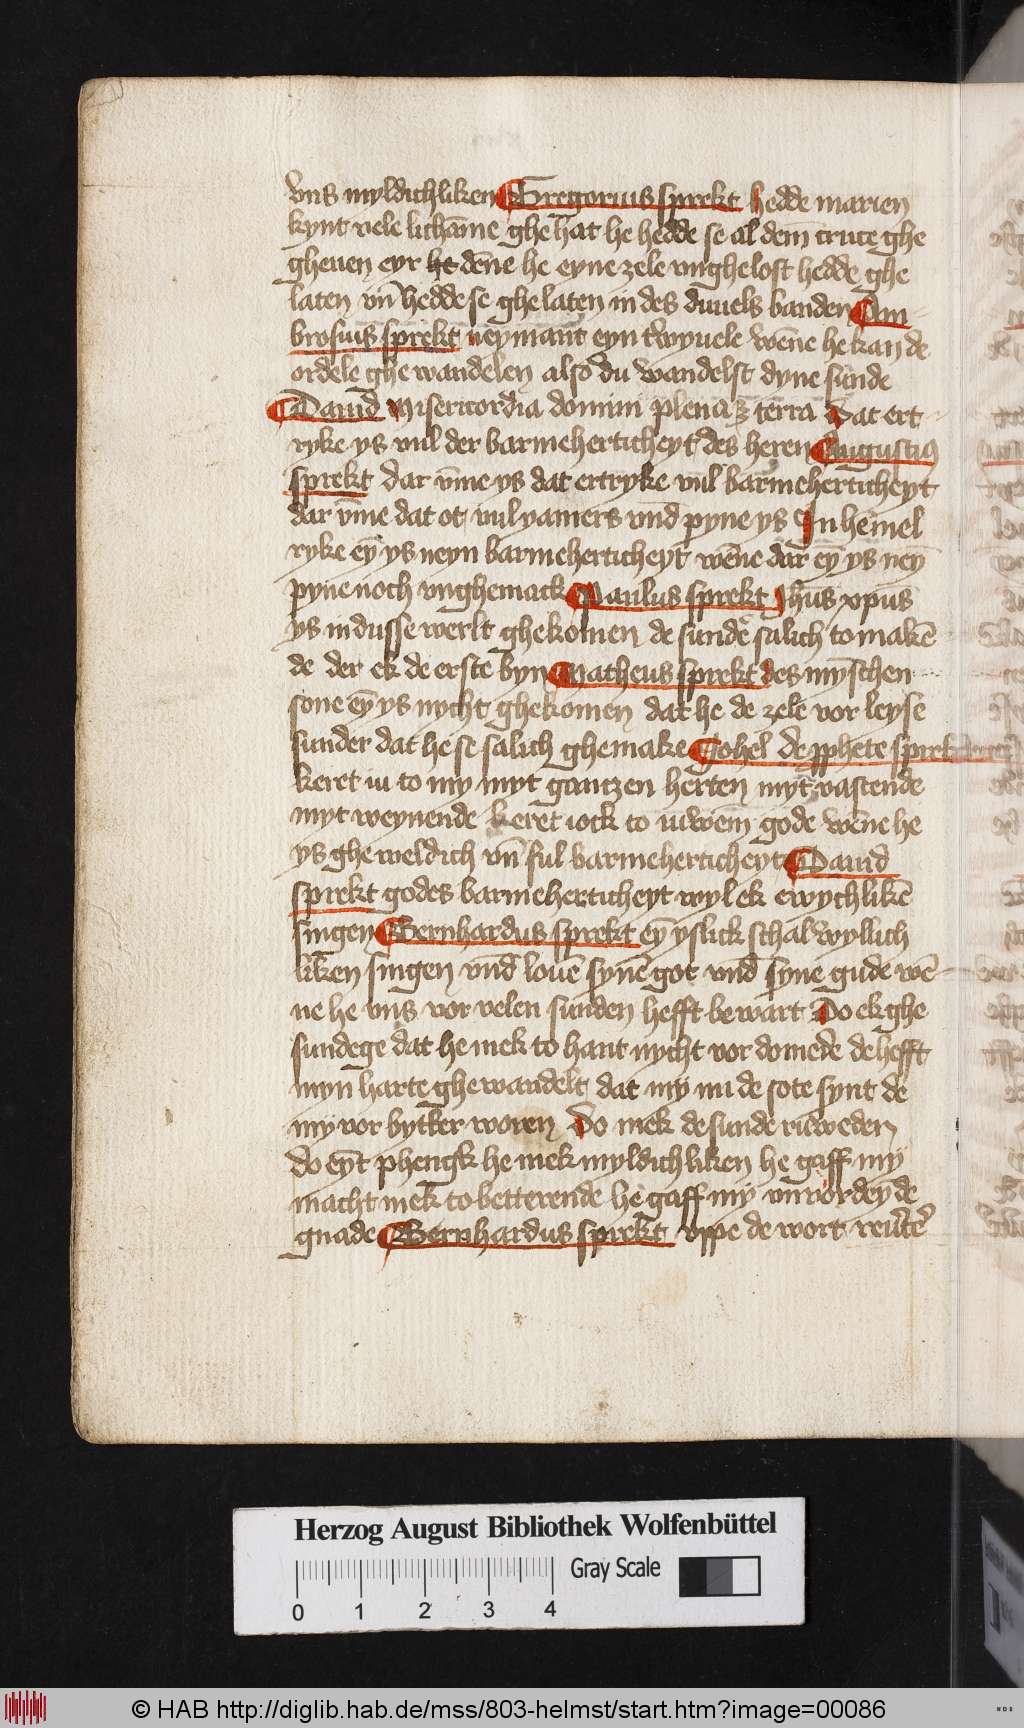 vns myldichliken Gregorius sprekt hedde marien
kynt vele lichāme ghehat he hedde se al dem cruce ghe
gheuen eyr he dēne he eyne zele vnghelost hedde ghe
laten vn̄ hedde se ghelaten in des duuels banden Am
brosius sprekt neymant eyn twyuele wēne he kan de
ordele ghewandelen also du wandelst dyne sunde
Dauid Misericordia domini plena ē terra Dat ert
ryke ys vul der barmeherticheyt des heren Augustin9
sprekt dar v̄me ys dat ertryke vul barmeherticheyt
dar v̄me dat ot vul yamers vnd pyne ys In hēmel
ryke eȳ ys neyn barmeherticheyt wēne dar eȳ ys neȳ
pyne noch vnghemack Paulus sprekt Jhūs xpūs
ys in dusse werlt ghekomen de sunde salich to makē
de der ek de erste byn Matheus sprekt des mȳschen
sone eȳ ys nycht ghekomen dat he de zele vorleyse
sunder dat he se salich ghemake Johel de ꝓphete sprekt
keret iu to my myt gantzen herten myt vastende
myt weynende keret iock to iuwem gode wēne he
ys gheweldich vn̄ ful barmeherticheyt Dauid
sprekt godes barmeherticheyt wyl ek ewychlikē
singen Bernhardus sprekt eȳ yslick schal wyllich
liken singen vnd louē synē got vnd syne gude wē
ne he vns vor velen sunden hefft bewart Do ek ghe
sundege dat he mek to hant nycht vordomede de hefft
myn harte ghewandelt dat my nu de sote synt de
my vor bytter woren Do mek de sunde ruweden
do eȳt phengk he mek myldichliken he gaff my
macht mek to betterende he gaff my vnvordeyde
gnade Bernhardus sprekt vppe de wort
Herzog August Bibliothek Wolfenbüttel
Gray Scale
0 1 2 3 4
© HAB http://diglib.hab.de/mss/803-helmst/start.htm?image=00086